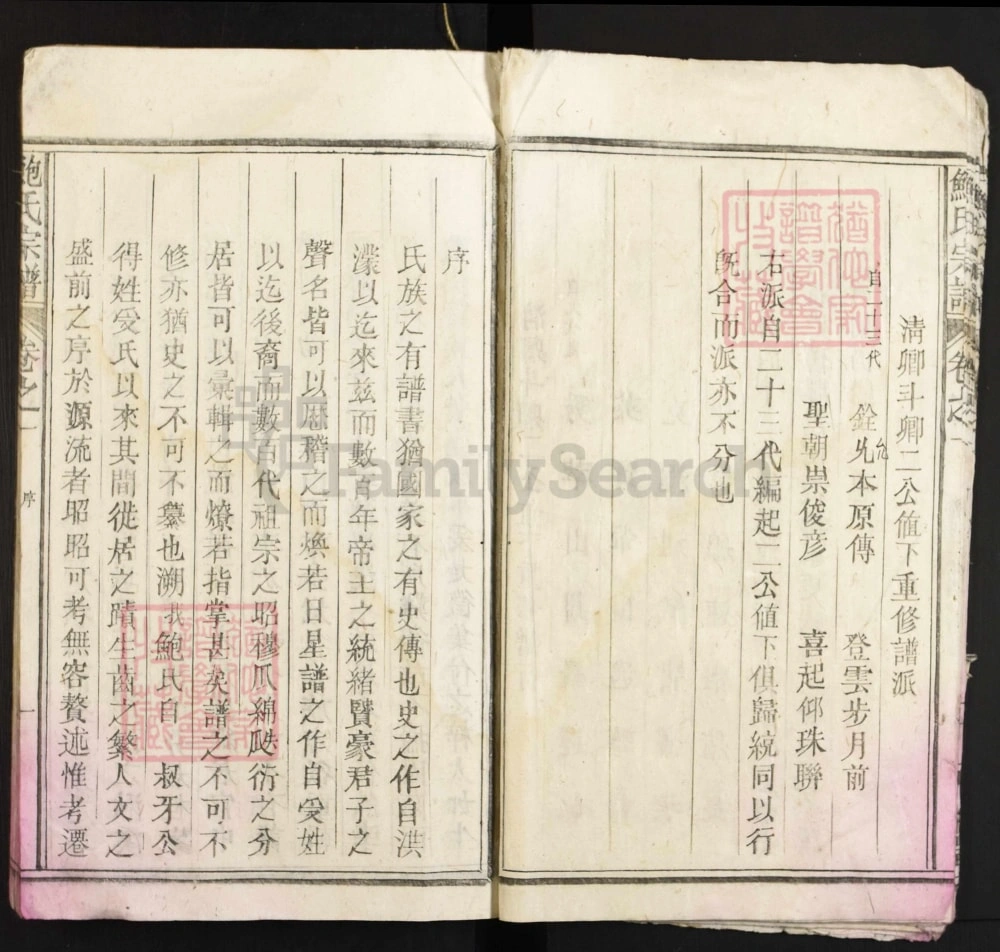 鮑氏宗譜
卷之一
清卿斗卿二公値下重修譜派
自二十三代
銓允本原傳 登雲步月前
聖朝崇俊彥 喜起仰珠聯
右派自二十三代編起二公値下俱歸統同以行
旣合而派亦不分也
序
氏族之有譜書猶國家之有史傳也史之作自洪
濛以迄來茲而數百年帝王之統緒賢豪君子之
聲名皆可以歷稽之而煥若日星譜之作自受姓
以迄後裔而數百代祖宗之昭穆瓜綿瓞衍之分
居皆可以彙輯之而燎若指掌甚矣譜之不可不
修亦猶史之不可不纂也溯我鮑氏自 叔牙公
得姓受氏以來其間徙居之蹟生齒之繁人文之
盛前之序於源流者昭昭可考無容贅述惟考遷
鮑氏宗譜
卷之一
序
一
FamilySearch